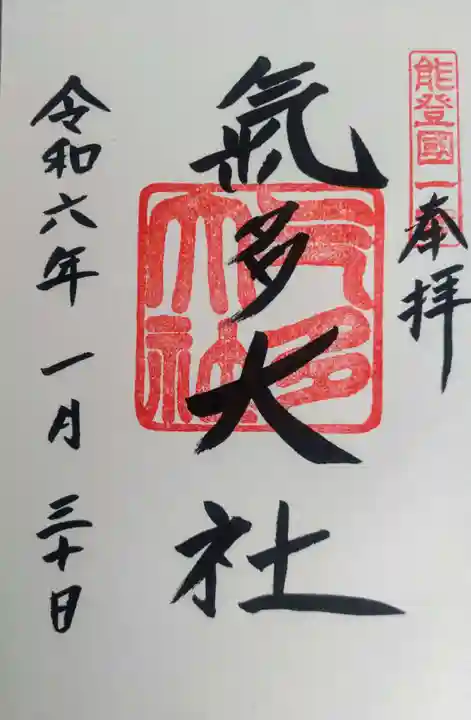 能登國一
奉拝
氣多大社
气多大社
令和六年一月三十日